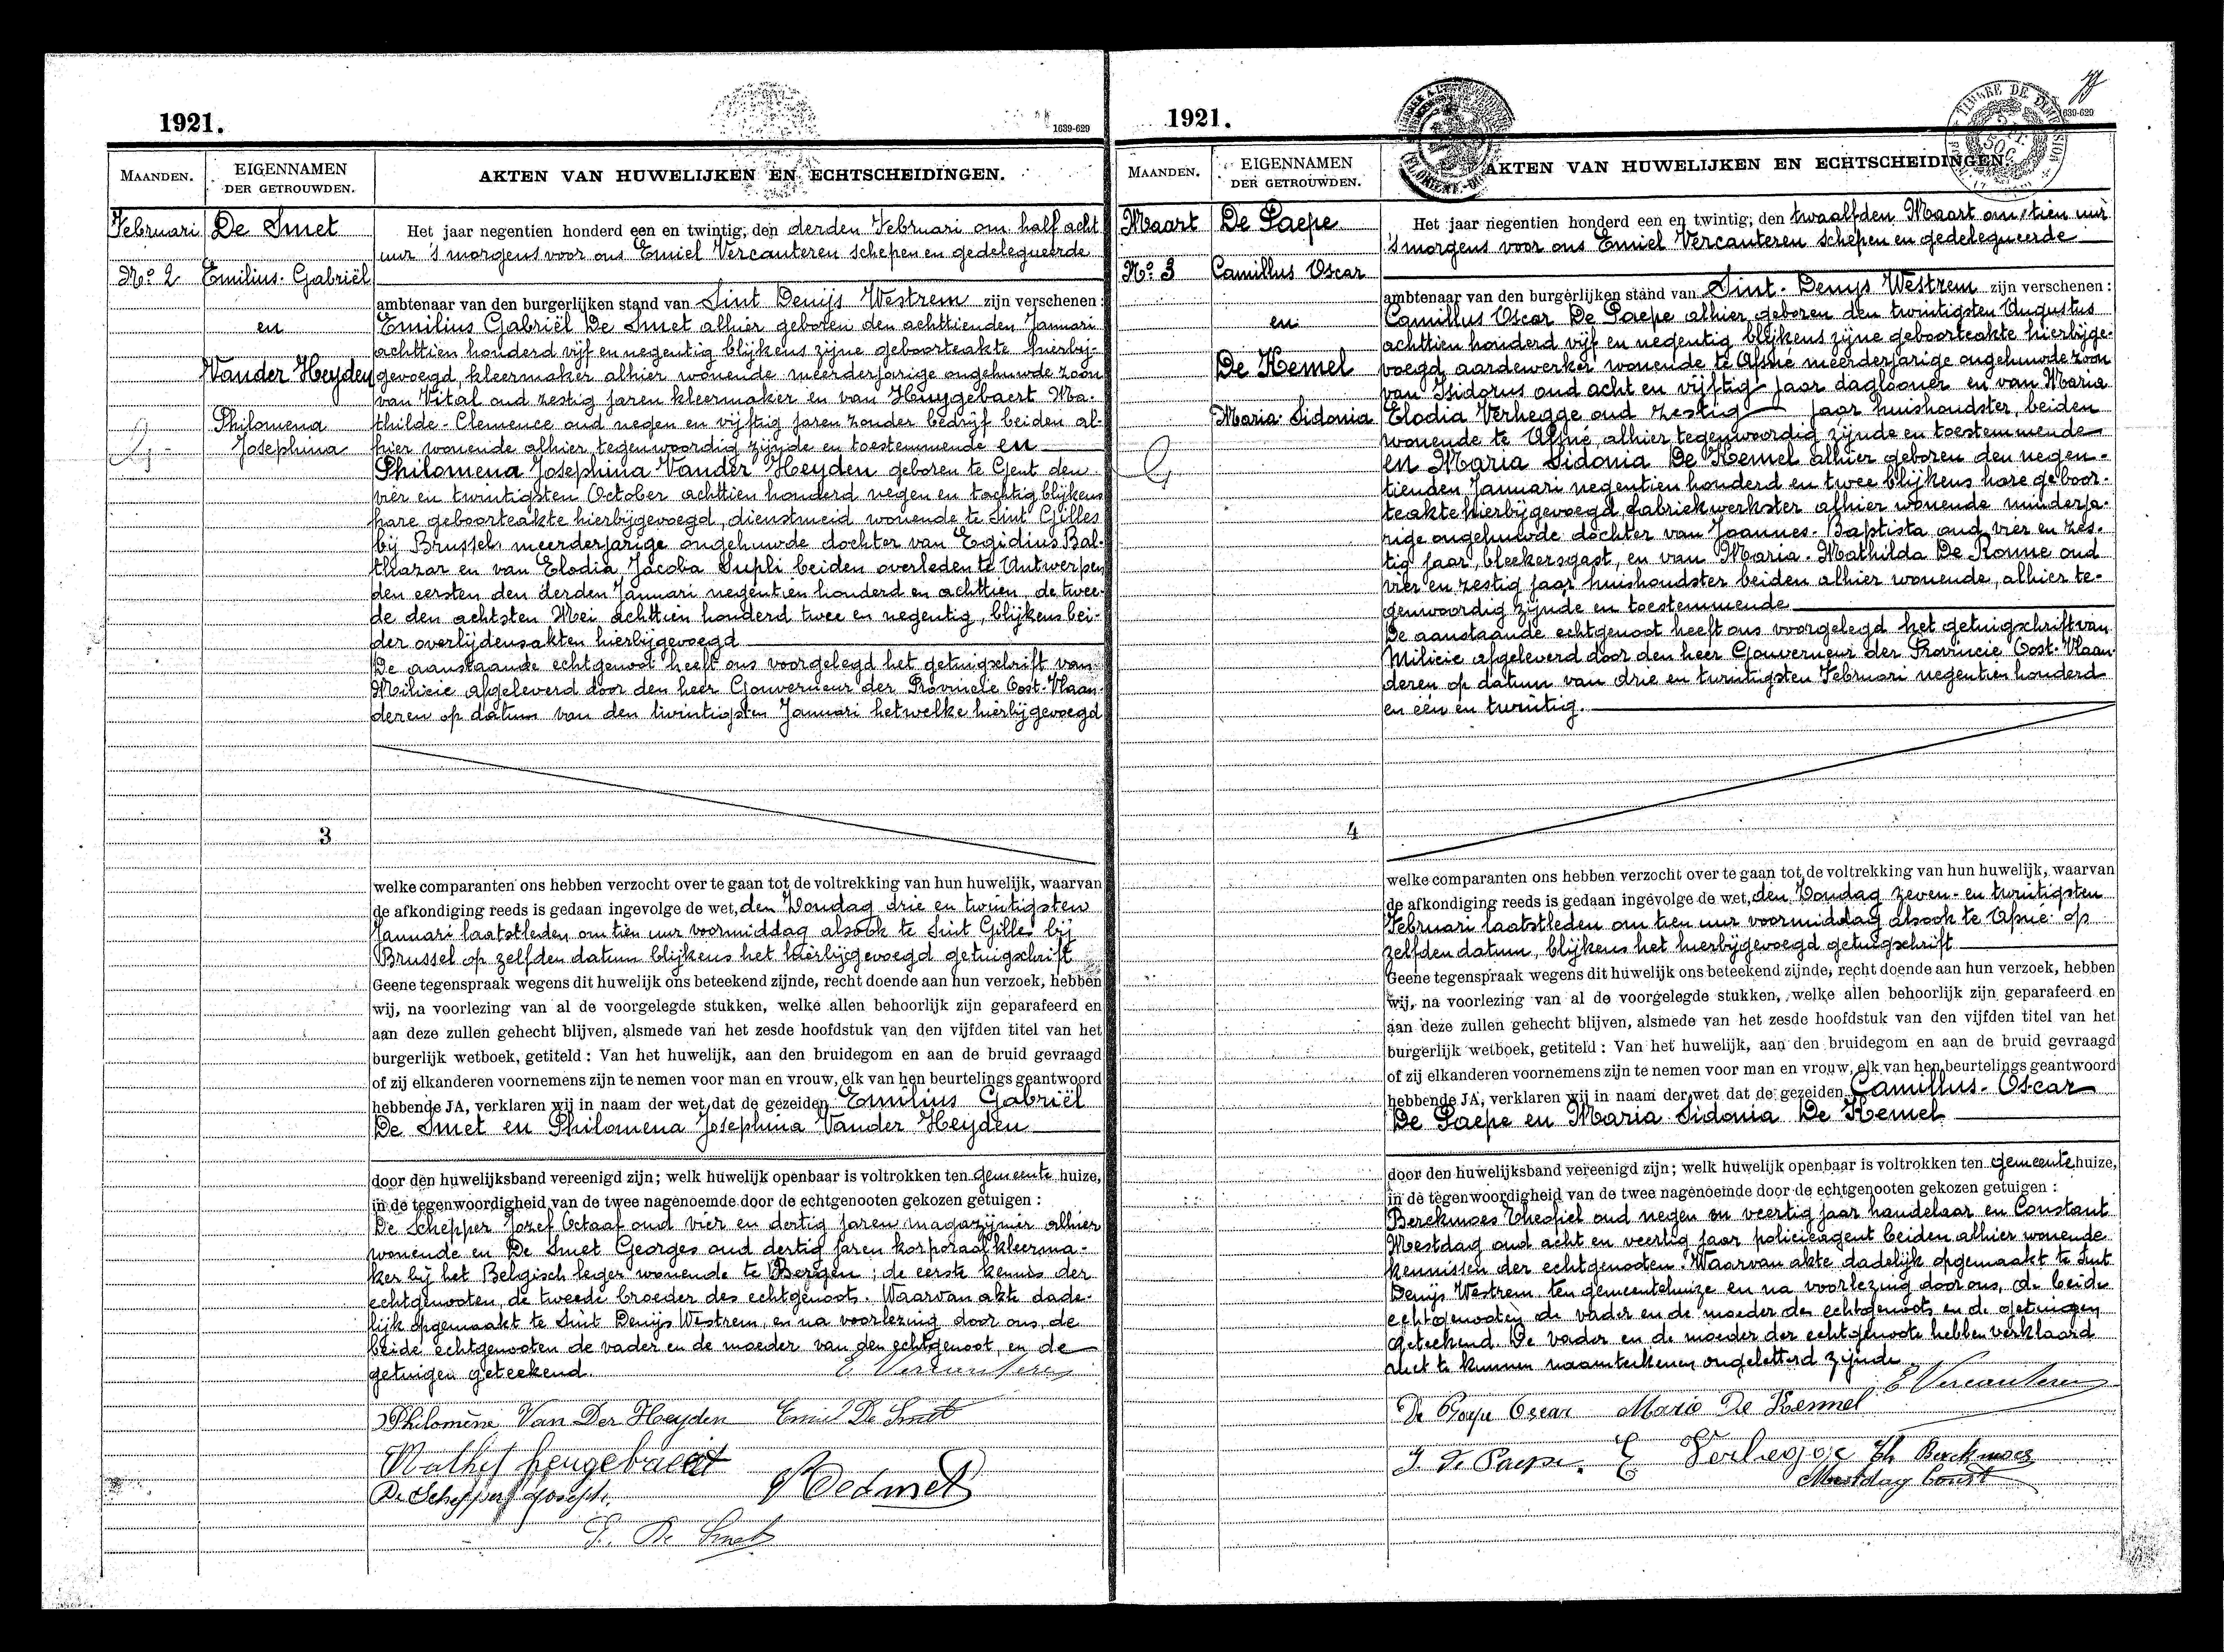 1921.
1639-629
MAANDEN.
EIGENNAMEN
DER GETROUWDEN.
AKTEN VAN HUWELIJKEN EN ECHTSCHEIDINGEN.
Februari
De Smet
No. 2
Emilius Gabriël
en
Vander Heyden
Philomena
Josephina
3
Het jaar negentien honderd een en twintig, den derden Februari om half acht
uur 's morgens voor ons Emiel Vercauteren schepen en gedelegueerde
ambtenaar van den burgerlijken stand van Sint Denijs Westrem zijn verschenen:
Emilius Gabriël De Smet alhier geboren den achttienden Januari
achttien honderd vijf en negentig blijkens zijne geboorteakte hierbij-
gevoegd, kleermaker alhier wonende meerderjarige ongehuwde zoon
van Vital oud zestig jaren kleermaker en van Huygebaert Ma-
thilde-Clemence oud negen en vijftig jaren zonder bedrijf beiden al-
hier wonende alhier tegenwoordig zijnde en toestemmende en
Philomena Josephina Vander Heyden geboren te Gent den
vier en twintigsten October achttien honderd negen en tachtig blijkens
hare geboorteakte hierbijgevoegd, dienstmeid wonende te Sint Gilles
bij Brussel, meerderjarige ongehuwde dochter van Egidius Bal-
thazar en van Elodia Jacoba Supli beiden overleden te Antwerpen
den eersten den derden Januari negentien honderd en achttien, de twee-
de den achtsten Mei achttien honderd twee en negentig, blijkens bei-
der overlijdensakten hierbijgevoegd
De aanstaande echtgenoot heeft ons voorgelegd het getuigschrift van
Milicie afgeleverd door den heer Gouverneur der Provincie Oost-Vlaan-
deren op datum van den twintigsten Januari hetwelke hierbijgevoegd
welke comparanten ons hebben verzocht over te gaan tot de voltrekking van hun huwelijk, waarvan
de afkondiging reeds is gedaan ingevolge de wet, den Zondag drie en twintigsten
Januari laatstleden, om tien uur voormiddag alsook te Sint Gilles bij
Brussel op zelfden datum blijkens het hierbijgevoegd getuigschrift
Geene tegenspraak wegens dit huwelijk ons beteekend zijnde, recht doende aan hun verzoek, hebben
wij, na voorlezing van al de voorgelegde stukken, welke allen behoorlijk zijn geparafeerd en
aan deze zullen gehecht blijven, alsmede van het zesde hoofdstuk van den vijfden titel van het
burgerlijk wetboek, getiteld: Van het huwelijk, aan den bruidegom en aan de bruid gevraagd
of zij elkanderen voornemens zijn te nemen voor man en vrouw, elk van hen beurtelings geantwoord
hebbende JA, verklaren wij in naam der wet dat de gezeiden Emilius Gabriël
De Smet en Philomena Josephina Vander Heyden
door den huwelijksband vereenigd zijn; welk huwelijk openbaar is voltrokken ten gemeente huize,
in de tegenwoordigheid van de twee nagenoemde door de echtgenooten gekozen getuigen:
De Schepper Jozef Octaaf oud vier en dertig jaren magazijnier alhier
wonende en De Smet Georges oud dertig jaren korporaal kleerma-
ker bij het Belgisch leger wonende te Bergen; de eerste kennis der
echtgenooten, de tweede broeder des echtgenoots. Waarvan akte dade-
lijk opgemaakt te Sint Denijs Westrem, en na voorlezing door ons, de
beide echtgenooten de vader en de moeder van den echtgenoot, en de
getuigen geteekend.
E Vercauteren
Philomène Van Der Heyden Emiel De Smet
De Schepper Joseph
De Smet
De Smet
1921.
1639-629
TIMBRE DE DIMENSION
MAANDEN.
EIGENNAMEN
DER GETROUWDEN.
AKTEN VAN HUWELIJKEN EN ECHTSCHEIDINGEN.
Maart
De Paepe
No. 3
Camillus Oscar
en
De Kemel
Maria Sidonia
4
Het jaar negentien honderd een en twintig, den twaalfden Maart om tien uur
's morgens voor ons Emiel Vercauteren schepen en gedelegueerde
ambtenaar van den burgerlijken stand van Sint-Denys Westrem zijn verschenen:
Camillus Oscar De Paepe alhier geboren den twintigsten Augustus
achttien honderd vijf en negentig blijkens zijne geboorteakte hierbijge-
voegd, aardewerker wonende te Afsné meerderjarige ongehuwde zoon
van Isidorus oud acht en vijftig jaar daglooner en van Maria
Elodia Verhegge oud zestig jaar huishoudster, beiden
wonende te Afsné, alhier tegenwoordig zijnde en toestemmende
en Maria Sidonia De Kemel alhier geboren den negen-
tienden Januari negentien honderd en twee blijkens hare geboor-
teakte hierbijgevoegd, fabriekwerkster alhier wonende minderja-
rige ongehuwde dochter van Joannes-Baptista oud vier en zes-
tig jaar, bleekersgast, en van Maria-Mathilda De Ronne oud
vier en zestig jaar huishoudster beiden alhier wonende, alhier te-
genwoordig zijnde en toestemmende
De aanstaande echtgenoot heeft ons voorgelegd het getuigschrift van
Milicie afgeleverd door den heer Gouverneur der Provincie Oost-Vlaan-
deren op datum van drie en twintigsten Februari negentien honderd
en één en twintig.
welke comparanten ons hebben verzocht over te gaan tot de voltrekking van hun huwelijk, waarvan
de afkondiging reeds is gedaan ingevolge de wet, den Zondag zeven-en twintigsten
Februari laatstleden om tien uur voormiddag alsook te Afsné op
zelfden datum, blijkens het hierbijgevoegd getuigschrift
Geene tegenspraak wegens dit huwelijk ons beteekend zijnde, recht doende aan hun verzoek, hebben
wij, na voorlezing van al de voorgelegde stukken, welke allen behoorlijk zijn geparafeerd en
aan deze zullen gehecht blijven, alsmede van het zesde hoofdstuk van den vijfden titel van het
burgerlijk wetboek, getiteld: Van het huwelijk, aan den bruidegom en aan de bruid gevraagd
of zij elkanderen voornemens zijn te nemen voor man en vrouw, elk van hen beurtelings geantwoord
hebbende JA, verklaren wij in naam der wet dat de gezeiden Camillus-Oscar
De Paepe en Maria Sidonia De Kemel
door den huwelijksband vereenigd zijn; welk huwelijk openbaar is voltrokken ten gemeente huize,
in de tegenwoordigheid van de twee nagenoemde door de echtgenooten gekozen getuigen:
Berckmoes Theofiel oud negen en veertig jaar handelaar en Constant
Mestdag oud acht en veertig jaar policieagent beiden alhier wonende
kennissen der echtgenooten. Waarvan akte dadelijk opgemaakt te Sint
Denijs Westrem ten gemeentehuize en na voorlezing door ons, de beide
echtgenooten de vader en de moeder des echtgenoots en de getuigen
geteekend. De vader en de moeder der echtgenoote hebben verklaard
niet te kunnen naamteekenen ongeletterd zijnde
E Vercauteren
De Paepe Oscar Maria De Kemel
I. De Paepe. E Verhegge Th Berckmoes
Mestdag Const